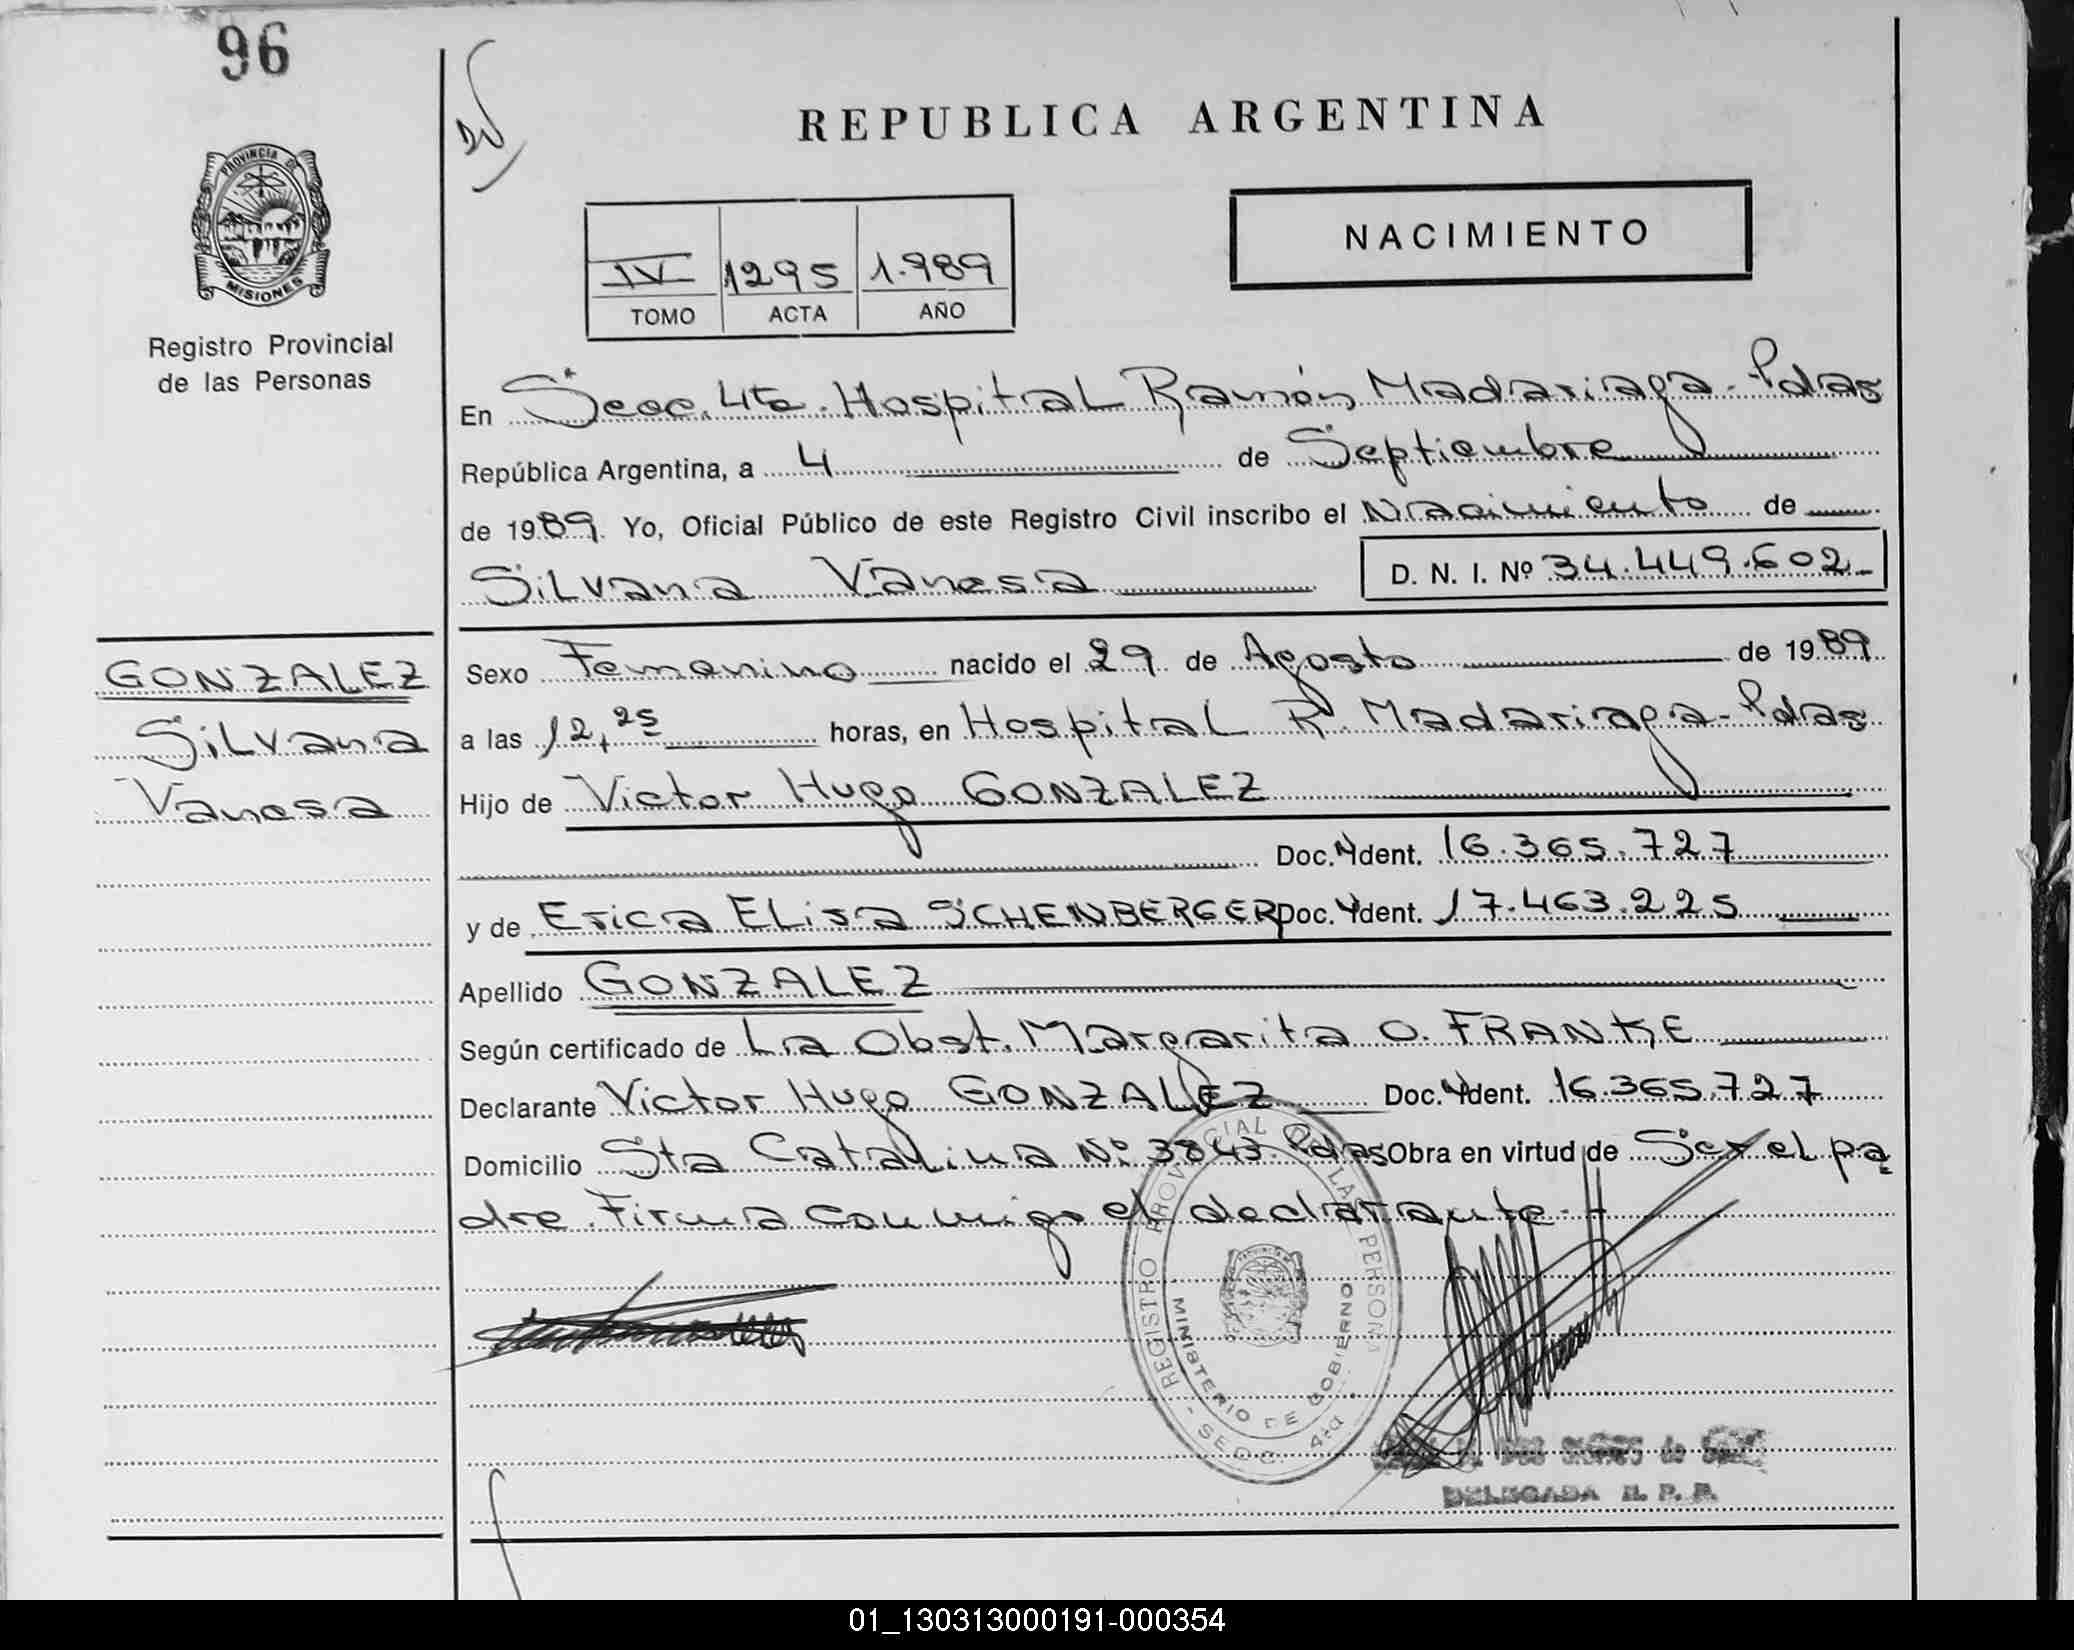 96
REPUBLICA ARGENTINA
PROVINCIA DE
MISIONES
Registro Provincial
de las Personas
IV 1295 1.989
TOMO ACTA AÑO
NACIMIENTO
En Secc. 4ta. Hospital Ramón Madariaga - Pdas
República Argentina, a 4 de Septiembre
de 1989. Yo, Oficial Público de este Registro Civil inscribo el Nacimiento de
Silvana Vanesa D. N. I. Nº 34.449.602.-
GONZALEZ
Silvana
Vanesa
Sexo Femenino nacido el 29 de Agosto de 1989
a las 12,25 horas, en Hospital R. Madariaga - Pdas
Hijo de Victor Hugo GONZALEZ
Doc. Ident. 16.365.727
y de Erica Elisa SCHENBERGER Doc. Ident. 17.463.225
Apellido GONZALEZ
Según certificado de La Obst. Margarita O. FRANKE
Declarante Victor Hugo GONZALEZ Doc. Ident. 16.365.727
Domicilio Sta Catalina Nº 3843 Pdas Obra en virtud de Ser el pa
dre. Firma conmigo el declarante.-
REGISTRO PROVINCIAL DE LAS PERSONAS
MINISTERIO DE GOBIERNO
- SECC. 4ta -
DELEGADA R. P. P.
01_130313000191-000354